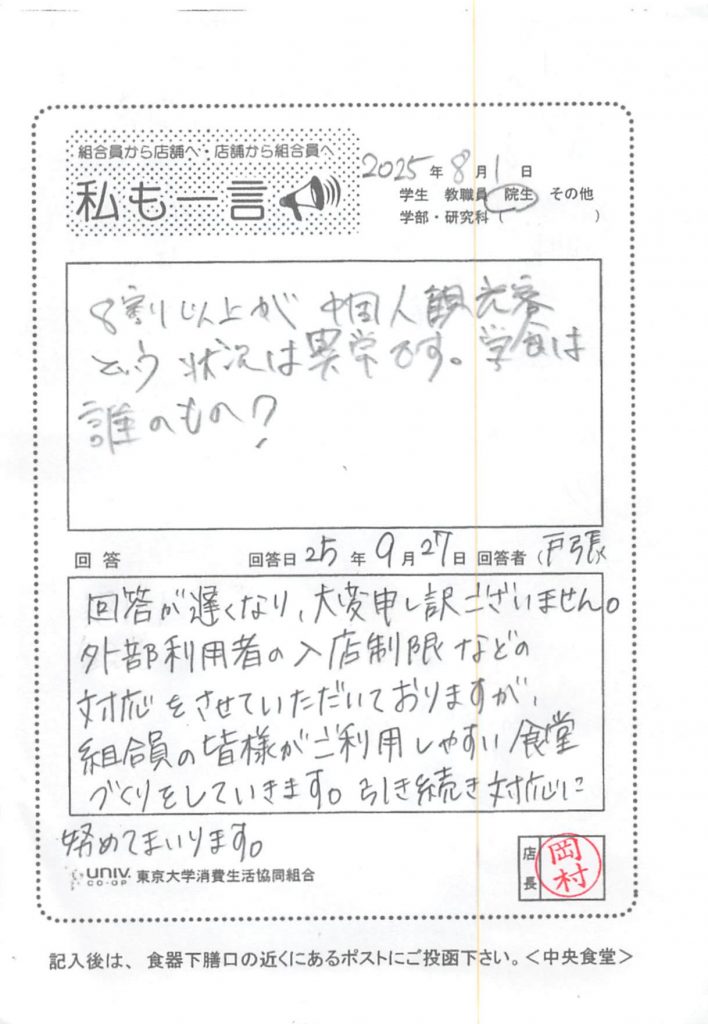 組合員から店舗へ・店舗から組合員へ
私も一言
2025年8月1日
学生 教職員 院生 その他
学部・研究科( )
8割以上が中国人観光客
という状況は異常です。学食は
誰のもの?
回答 回答日25年9月27日 回答者(戸張)
回答が遅くなり、大変申し訳ございません。
外部利用者の入店制限などの
対応をさせていただいておりますが、
組合員の皆様がご利用しやすい食堂
づくりをしていきます。引き続き対応に
努めてまいります。
UNIV. CO-OP 東京大学消費生活協同組合
店長 岡村
記入後は、食器下膳口の近くにあるポストにご投函下さい。<中央食堂>